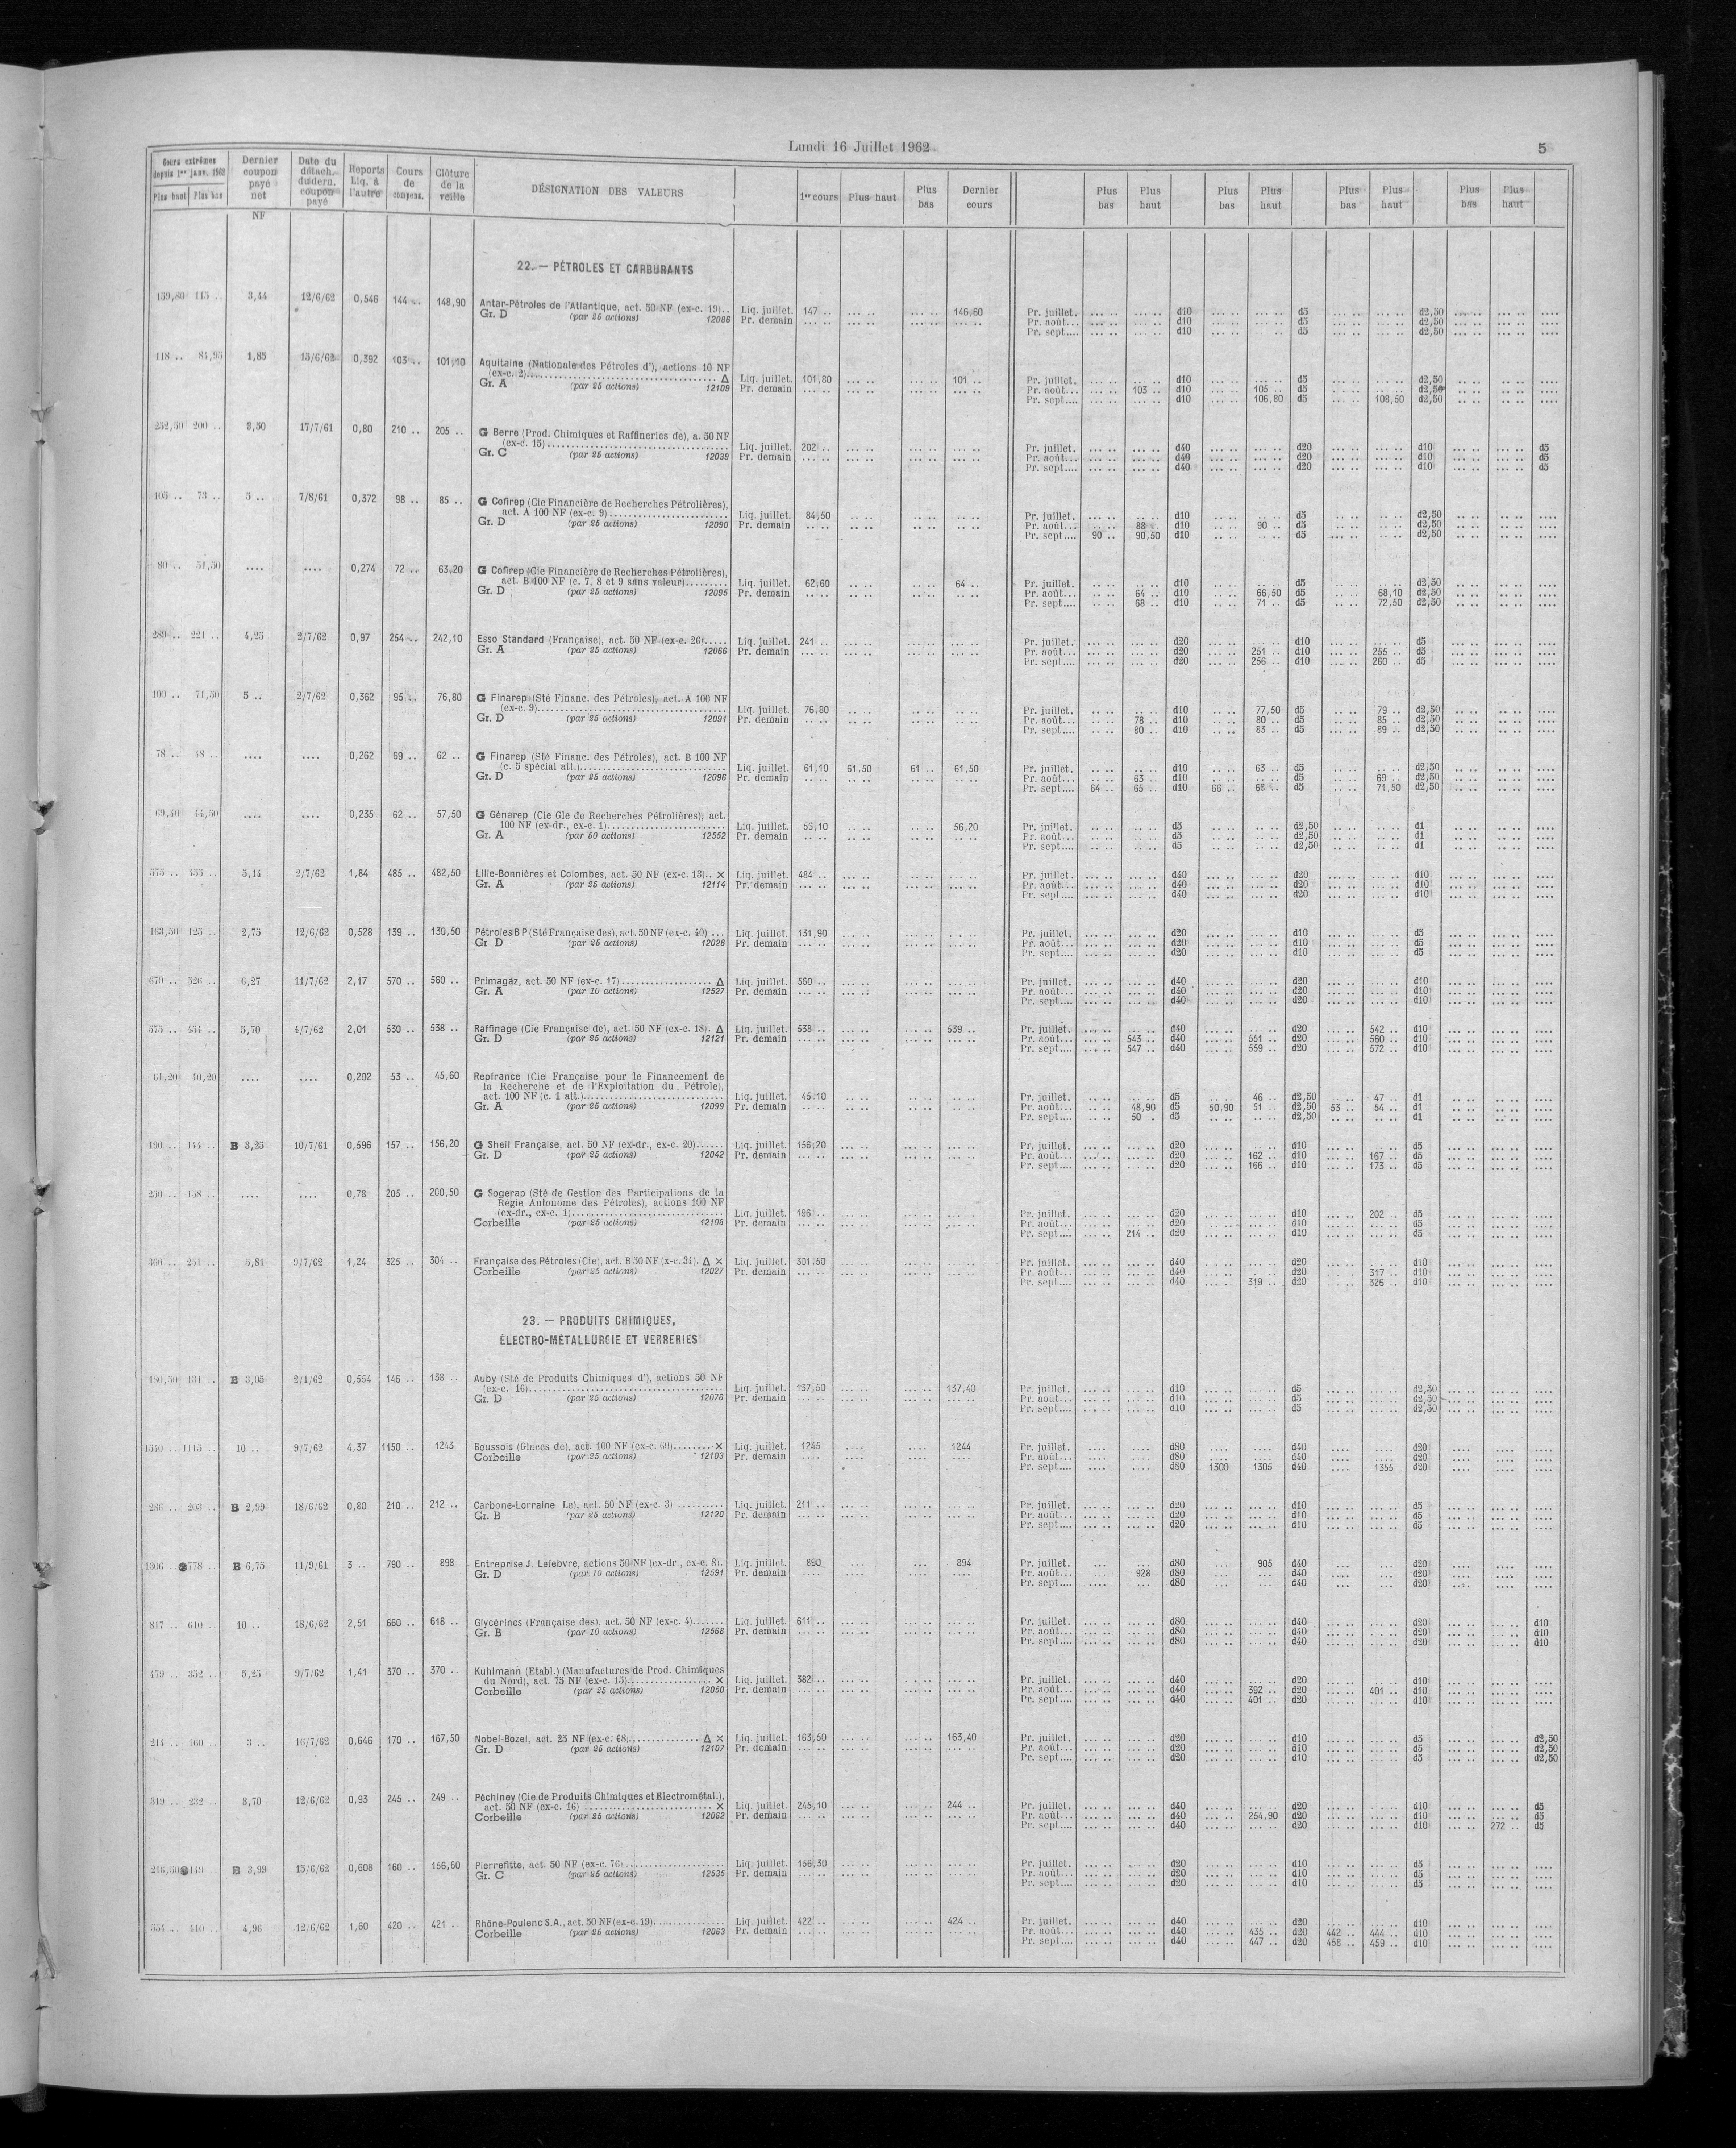 Lundi 16 Juillet 1962
5
Cours extrêmes depuis 1er janv. 1962 Plus haut Plus bas | Dernier coupon payé net NF | Date du détach. du dern. coupon payé | Reports Liq. à l'autre | Cours de compens. | Clôture de la veille | DÉSIGNATION DES VALEURS | 1er cours | Plus haut | Plus bas | Dernier cours | Plus bas | Plus haut | Plus bas | Plus haut | Plus bas | Plus haut | Plus bas | Plus haut
22. — PÉTROLES ET CARBURANTS
159,80 115 .. 3,44 12/6/62 0,546 144 .. 148,90 Antar-Pétroles de l'Atlantique, act. 50 NF (ex-c. 19).. Liq. juillet. 147 .. 146,60 Pr. juillet. d10 d5 d2,50
Gr. D (par 25 actions) 12086 Pr. demain Pr. août... d10 d5 d2,50
Pr. sept.... d10 d5 d2,50
118 .. 84,95 1,85 15/6/62 0,392 103 .. 101,10 Aquitaine (Nationale des Pétroles d'), actions 10 NF
(ex-c. 2) Δ Liq. juillet. 101,80 101 .. Pr. juillet. d10 d5 d2,50
Gr. A (par 25 actions) 12109 Pr. demain Pr. août... 103 .. d10 105 .. d5 d2,50
Pr. sept.... d10 106,80 d5 108,50 d2,50
252,50 200 .. 3,50 17/7/61 0,80 210 .. 205 .. G Berre (Prod. Chimiques et Raffineries de), a. 50 NF
(ex-c. 15) Liq. juillet. 202 .. Pr. juillet. d40 d20 d10 d5
Gr. C (par 25 actions) 12039 Pr. demain Pr. août... d40 d20 d10 d5
Pr. sept.... d40 d20 d10 d5
105 .. 73 .. 5 .. 7/8/61 0,372 98 .. 85 .. G Cofirep (Cie Financière de Recherches Pétrolières),
act. A 100 NF (ex-c. 9) Liq. juillet. 84,50 Pr. juillet. d10 d5 d2,50
Gr. D (par 25 actions) 12090 Pr. demain Pr. août... 88 .. d10 90 .. d5 d2,50
Pr. sept.... 90 .. 90,50 d10 d5 d2,50
80 .. 51,50 .... .... 0,274 72 .. 63,20 G Cofirep (Cie Financière de Recherches Pétrolières),
act. B 100 NF (c. 7, 8 et 9 sans valeur) Liq. juillet. 62,60 64 .. Pr. juillet. d10 d5 d2,50
Gr. D (par 25 actions) 12095 Pr. demain Pr. août... 64 .. d10 66,50 d5 68,10 d2,50
Pr. sept.... 68 .. d10 71 .. d5 72,50 d2,50
289 .. 221 .. 4,25 2/7/62 0,97 254 .. 242,10 Esso Standard (Française), act. 50 NF (ex-c. 26) Liq. juillet. 241 .. Pr. juillet. d20 d10 d5
Gr. A (par 25 actions) 12066 Pr. demain Pr. août... d20 251 .. d10 255 .. d5
Pr. sept.... d20 256 .. d10 260 .. d5
100 .. 71,50 5 .. 2/7/62 0,362 95 .. 76,80 G Finarep (Sté Financ. des Pétroles), act. A 100 NF
(ex-c. 9) Liq. juillet. 76,80 Pr. juillet. d10 77,50 d5 79 .. d2,50
Gr. D (par 25 actions) 12091 Pr. demain Pr. août... 78 .. d10 80 .. d5 85 .. d2,50
Pr. sept.... 80 .. d10 83 .. d5 89 .. d2,50
78 .. 48 .. .... .... 0,262 69 .. 62 .. G Finarep (Sté Financ. des Pétroles), act. B 100 NF
(c. 5 spécial att.) Liq. juillet. 61,10 61,50 61 .. 61,50 Pr. juillet. d10 63 .. d5 d2,50
Gr. D (par 25 actions) 12096 Pr. demain Pr. août... 63 .. d10 d5 69 .. d2,50
Pr. sept.... 64 .. 65 .. d10 66 .. 68 .. d5 71,50 d2,50
69,40 44,50 .... .... 0,235 62 .. 57,50 G Génarep (Cie Gle de Recherches Pétrolières), act.
100 NF (ex-dr., ex-c. 1) Liq. juillet. 56,10 56,20 Pr. juillet. d5 d2,50 d1
Gr. A (par 50 actions) 12552 Pr. demain Pr. août... d5 d2,50 d1
Pr. sept.... d5 d2,50 d1
575 .. 455 .. 5,14 2/7/62 1,84 485 .. 482,50 Lille-Bonnières et Colombes, act. 50 NF (ex-c. 13).. × Liq. juillet. 484 .. Pr. juillet. d40 d20 d10
Gr. A (par 25 actions) 12114 Pr. demain Pr. août... d40 d20 d10
Pr. sept.... d40 d20 d10
163,50 125 .. 2,75 12/6/62 0,528 139 .. 130,50 Pétroles B P (Sté Française des), act. 50 NF (ex-c. 40) ... Liq. juillet. 131,90 Pr. juillet. d20 d10 d5
Gr D (par 25 actions) 12026 Pr. demain Pr. août... d20 d10 d5
Pr. sept.... d20 d10 d5
670 .. 526 .. 6,27 11/7/62 2,17 570 .. 560 .. Primagaz, act. 50 NF (ex-c. 17) Δ Liq. juillet. 560 .. Pr. juillet. d40 d20 d10
Gr. A (par 10 actions) 12527 Pr. demain Pr. août... d40 d20 d10
Pr. sept.... d40 d20 d10
575 .. 454 .. 5,70 4/7/62 2,01 530 .. 538 .. Raffinage (Cie Française de), act. 50 NF (ex-c. 18). Δ Liq. juillet. 538 .. 539 .. Pr. juillet. d40 d20 542 .. d10
Gr. D (par 25 actions) 12121 Pr. demain Pr. août... 543 .. d40 551 .. d20 560 .. d10
Pr. sept.... 547 .. d40 559 .. d20 572 .. d10
61,20 40,20 .... .... 0,202 53 .. 45,60 Repfrance (Cie Française pour le Financement de
la Recherche et de l'Exploitation du Pétrole),
act. 100 NF (c. 1 att.) Liq. juillet. 45,10 Pr. juillet. d5 46 .. d2,50 47 .. d1
Gr. A (par 25 actions) 12099 Pr. demain Pr. août... 48,90 d5 50,90 51 .. d2,50 53 .. 54 .. d1
Pr. sept.... 50 . d5 d2,50 d1
190 .. 144 .. B 3,25 10/7/61 0,596 157 .. 156,20 G Shell Française, act. 50 NF (ex-dr., ex-c. 20) Liq. juillet. 156,20 Pr. juillet. d20 d10 d5
Gr. D (par 25 actions) 12042 Pr. demain Pr. août... d20 162 .. d10 167 .. d5
Pr. sept.... d20 166 .. d10 173 .. d5
250 .. 158 .. .... .... 0,78 205 .. 200,50 G Sogerap (Sté de Gestion des Participations de la
Régie Autonome des Pétroles), actions 100 NF
(ex-dr., ex-c. 1) Liq. juillet. 196 .. Pr. juillet. d20 d10 202 .. d5
Corbeille (par 25 actions) 12108 Pr. demain Pr. août... d20 d10 d5
Pr. sept.... 214 .. d20 d10 d5
251 .. 5,81 9/7/62 1,24 325 .. 304 .. Française des Pétroles (Cie), act. B 50 NF (x-c. 34). Δ × Liq. juillet. 301,50 Pr. juillet. d40 d20 d10
Corbeille (par 25 actions) 12027 Pr. demain Pr. août... d40 d20 317 .. d10
Pr. sept.... d40 319 .. d20 326 .. d10
23. — PRODUITS CHIMIQUES,
ÉLECTRO-MÉTALLURGIE ET VERRERIES
180,50 131 .. B 3,05 2/1/62 0,554 146 .. 138 .. Auby (Sté de Produits Chimiques d'), actions 50 NF
(ex-c. 16) Liq. juillet. 137,50 137,40 Pr. juillet. d10 d5 d2,50
Gr. D (par 25 actions) 12076 Pr. demain Pr. août... d10 d5 d2,50
Pr. sept.... d10 d5 d2,50
1540 .. 1115 .. 10 .. 9/7/62 4,37 1150 .. 1243 Boussois (Glaces de), act. 100 NF (ex-c. 60) × Liq. juillet. 1245 1244 Pr. juillet. d80 d40 d20
Corbeille (par 25 actions) 12103 Pr. demain Pr. août... d80 d40 d20
Pr. sept.... d80 1300 1305 d40 1355 d20
286 .. 203 .. B 2,99 18/6/62 0,80 210 .. 212 .. Carbone-Lorraine Le), act. 50 NF (ex-c. 3) Liq. juillet. 211 .. Pr. juillet. d20 d10 d5
Gr. B (par 25 actions) 12120 Pr. demain Pr. août... d20 d10 d5
Pr. sept.... d20 d10 d5
1306 .. 778 .. B 6,75 11/9/61 3 .. 790 .. 898 Entreprise J. Lefebvre, actions 50 NF (ex-dr., ex-c. 8). Liq. juillet. 890 894 Pr. juillet. d80 905 d40 d20
Gr. D (par 10 actions) 12591 Pr. demain Pr. août... 928 d80 d40 d20
Pr. sept.... d80 d40 d20
817 .. 610 .. 10 .. 18/6/62 2,51 660 .. 618 .. Glycérines (Française des), act. 50 NF (ex-c. 4) Liq. juillet. 611 .. Pr. juillet. d80 d40 d20 d10
Gr. B (par 10 actions) 12568 Pr. demain Pr. août... d80 d40 d20 d10
Pr. sept.... d80 d40 d20 d10
479 .. 352 .. 5,25 9/7/62 1,41 370 .. 370 .. Kuhlmann (Etabl.) (Manufactures de Prod. Chimiques
du Nord), act. 75 NF (ex-c. 15) × Liq. juillet. 382 .. Pr. juillet. d40 d20 d10
Corbeille (par 25 actions) 12050 Pr. demain Pr. août... d40 392 .. d20 401 .. d10
Pr. sept.... d40 401 .. d20 d10
214 .. 160 .. 3 .. 16/7/62 0,646 170 .. 167,50 Nobel-Bozel, act. 25 NF (ex-c. 68) Δ × Liq. juillet. 163,50 163,40 Pr. juillet. d20 d10 d5 d2,50
Gr. D (par 25 actions) 12107 Pr. demain Pr. août... d20 d10 d5 d2,50
Pr. sept.... d20 d10 d5 d2,50
319 .. 232 .. 3,70 12/6/62 0,93 245 .. 249 .. Péchiney (Cie de Produits Chimiques et Electrométal.),
act. 50 NF (ex-c. 16) × Liq. juillet. 245,10 244 .. Pr. juillet. d40 d20 d10 d5
Corbeille (par 25 actions) 12062 Pr. demain Pr. août... d40 254,90 d20 d10 d5
Pr. sept.... d40 d20 d10 272 .. d5
216,50 149 .. B 3,99 15/6/62 0,608 160 .. 156,60 Pierrefitte, act. 50 NF (ex-c. 76) Liq. juillet. 156,30 Pr. juillet. d20 d10 d5
Gr. C (par 25 actions) 12535 Pr. demain Pr. août... d20 d10 d5
Pr. sept.... d20 d10 d5
554 .. 410 .. 4,96 12/6/62 1,60 420 .. 421 .. Rhône-Poulenc S.A., act. 50 NF (ex-c. 19) Liq. juillet. 422 .. 424 .. Pr. juillet. d40 d20 d10
Corbeille (par 25 actions) 12063 Pr. demain Pr. août... d40 435 .. d20 442 .. 444 .. d10
Pr. sept.... d40 447 .. d20 458 .. 459 .. d10